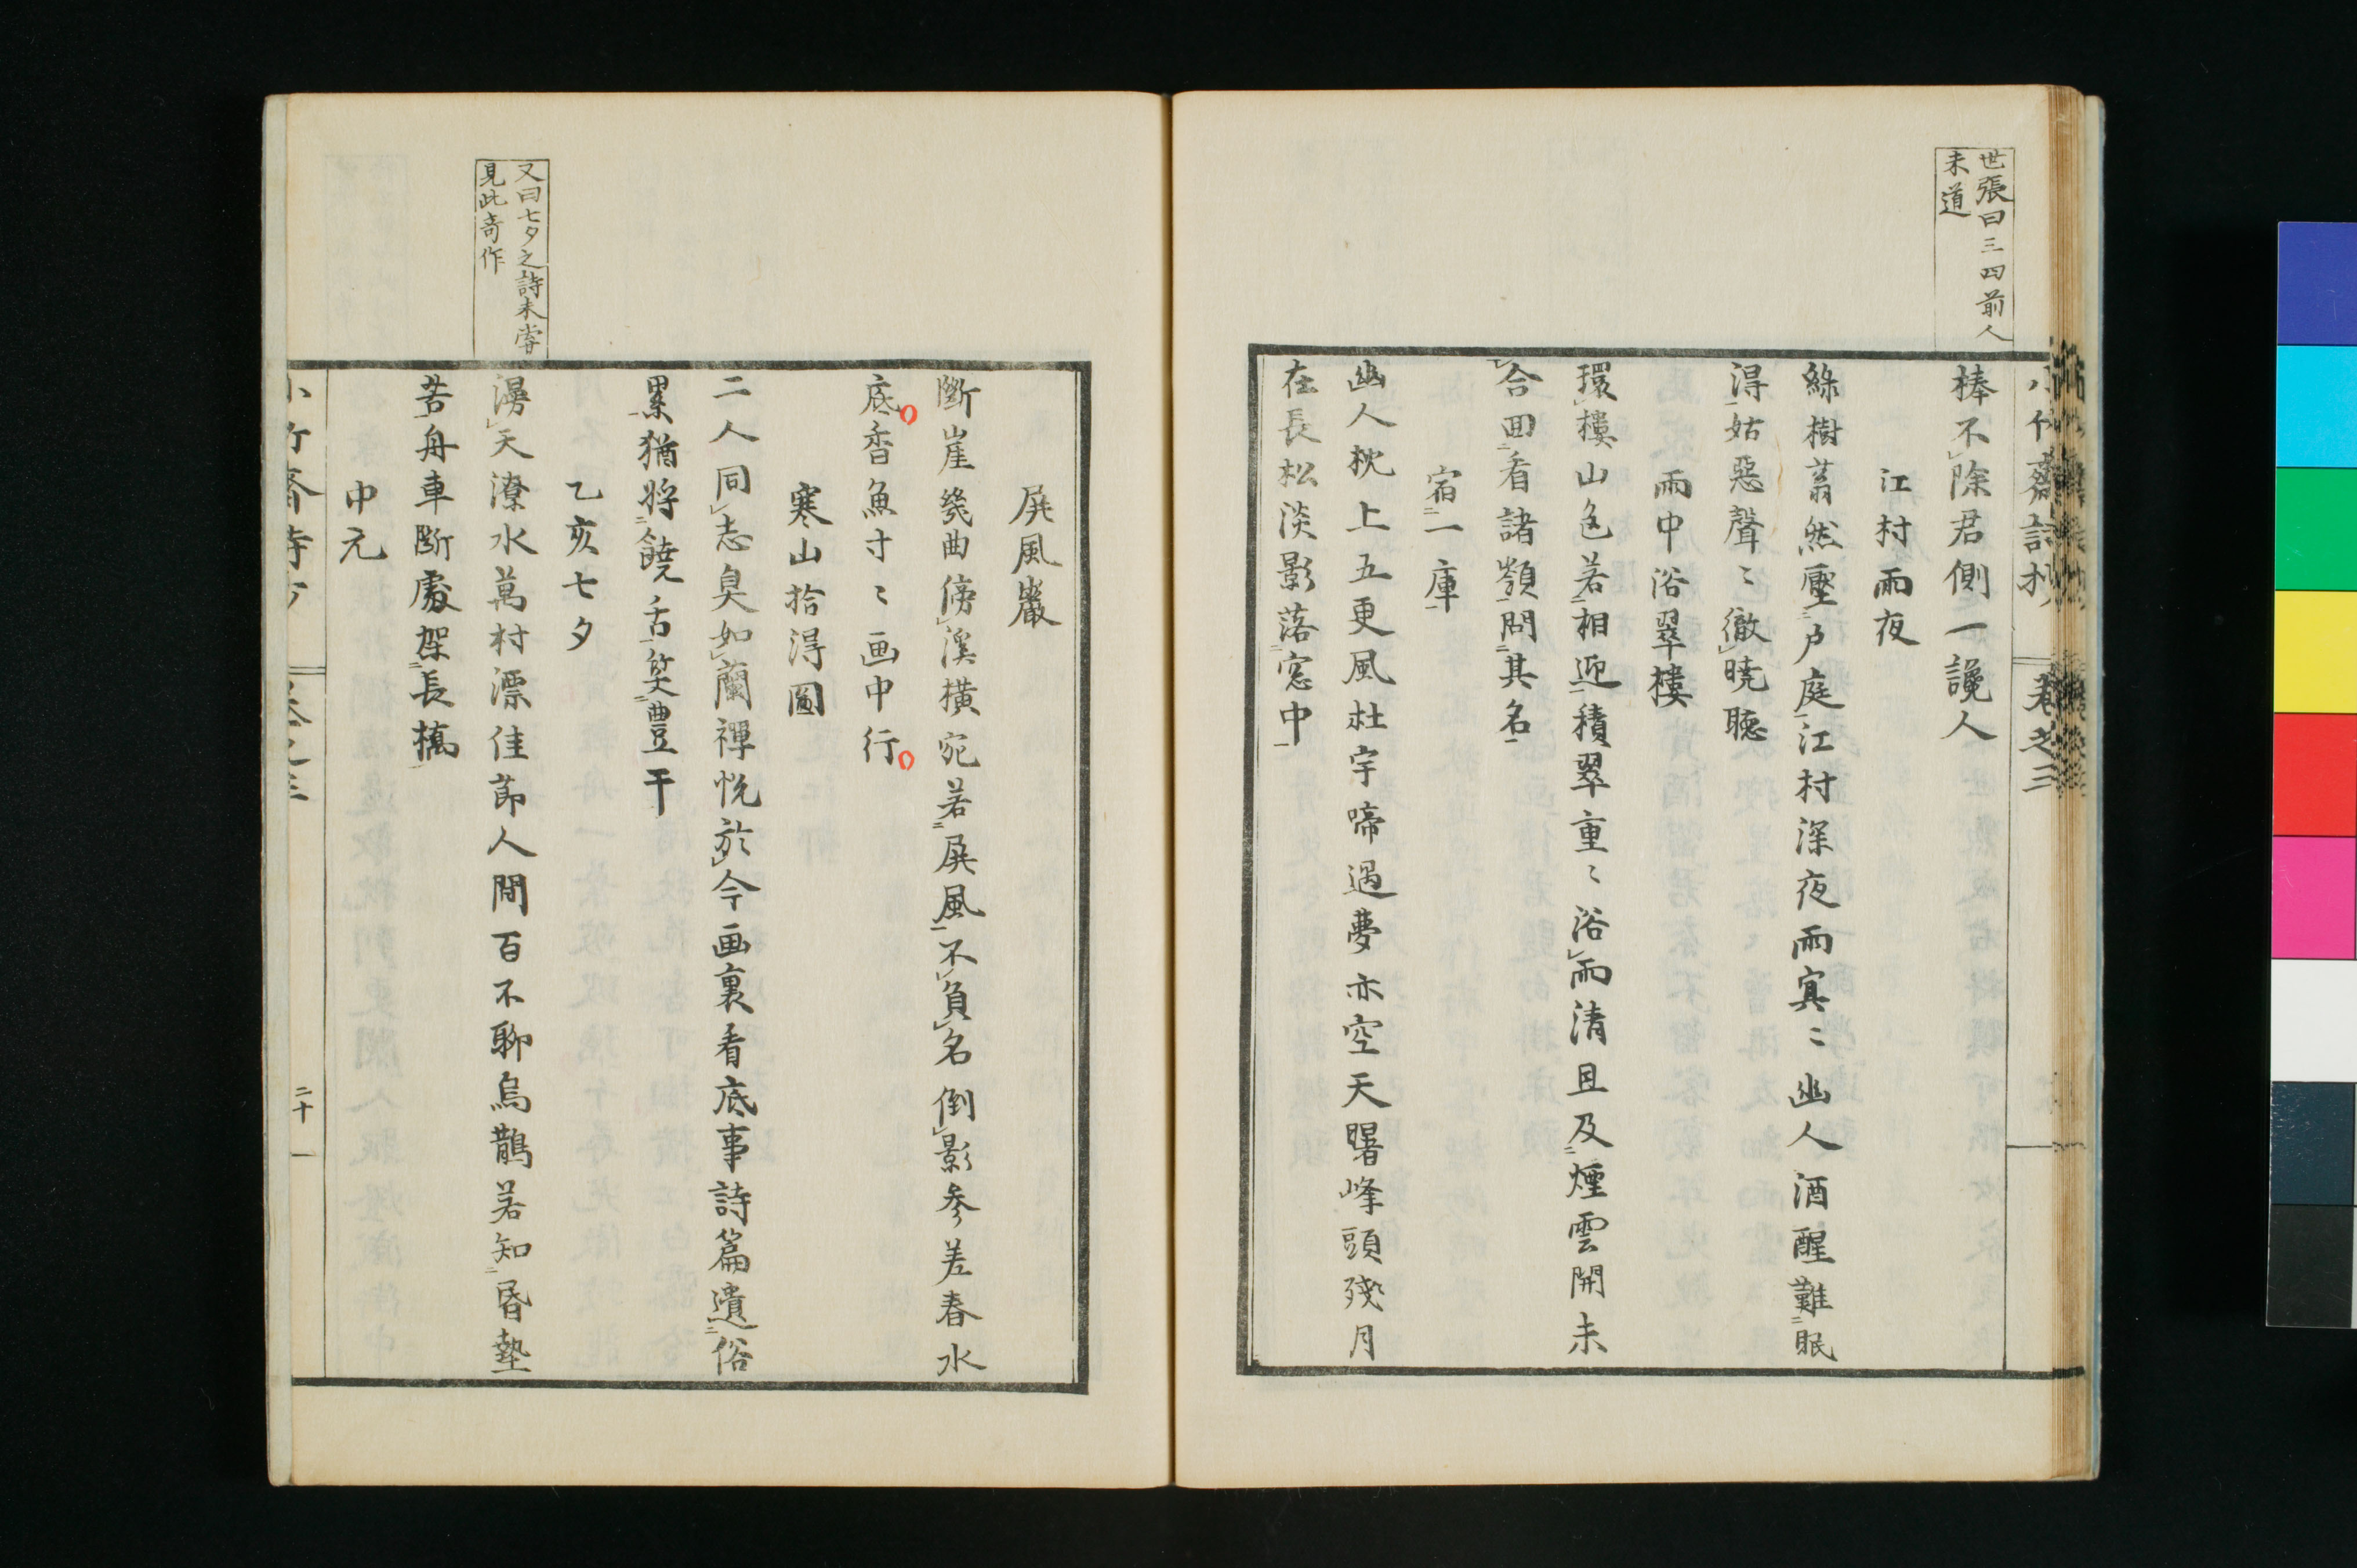 世張曰三四前人
未道
小竹齋詩抄 卷之三
棒不除君側一讒人
江村雨夜
綠樹蓊然壓戸庭江村深夜雨寞〻幽人酒醒難眠
得姑惡聲〻徹曉聽
雨中浴翠樓
環樓山色若相迎積翠重〻浴雨清且及煙雲開未
合回看諸嶺問其名
宿一庫
幽人枕上五更風杜宇啼過夢亦空天曙峰頭殘月
在長松淡影落窓中
屏風巖
斷崖幾曲傍溪橫宛若屏風不負名倒影參差春水
底香魚寸〻画中行
寒山拾得圖
二人同志臭如蘭禪悅於今画裏看底事詩篇遺俗
累猶將饒舌笑豊干
又曰七夕之詩未嘗
見此奇作
乙亥七夕
漫天潦水萬村漂佳節人間百不聊烏鵲若知昏墊
苦舟車斷處架長橋
中元
小竹齋詩抄 卷之三 二十一